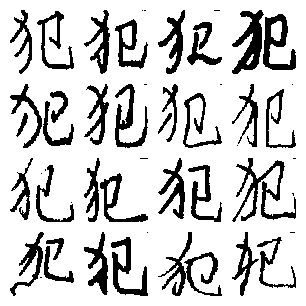 犯犯犯犯
犯犯犯犯
犯犯犯犯
犯犯犯犯